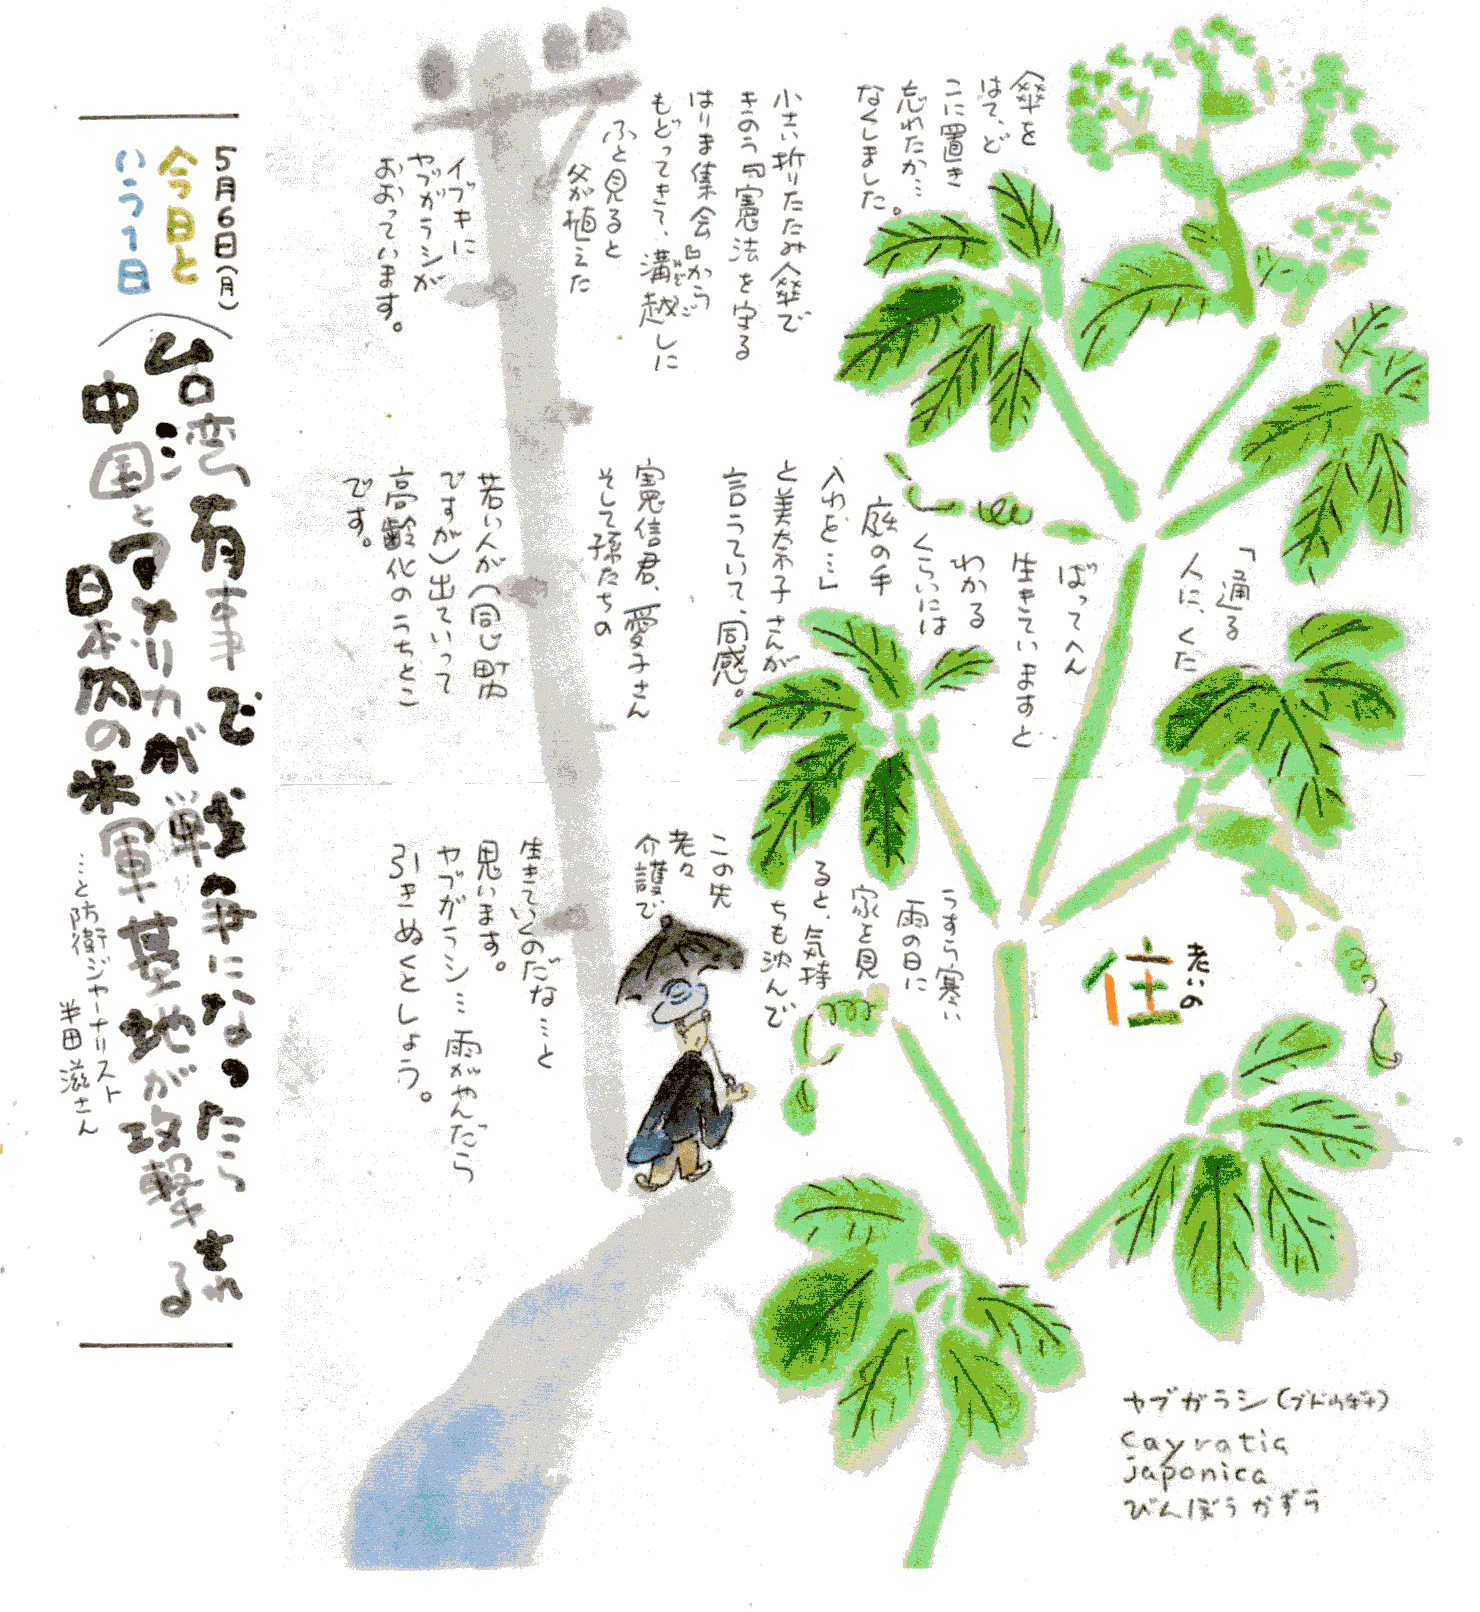 傘を
はて、ど
こに置き
忘れたか…
なくしました。
小さい折りたたみ傘で
きのう『憲法を守る
はりま集会』から
もどってきて、溝越しに
みぞご
ふと見ると
父が植えた
イブキに
ヤブガラシが
おおっています。
「通る
人に、くた
ばってへん
生きていますと
わかる
くらいには
庭の手
入れを…」
と美奈子さんが
言うていて、同感。
寛信君、愛子さん
そして孫たちの
若い人が(同じ町内
ですが)出ていって
高齢化のうちとこ
です。
老いの
住
うすら寒い
雨の日に
家を見
ると、気持
ちも沈んで
この先
老々
介護で
生きていくのだな…と
思います。
ヤブガラシ…雨がやんだら
引きぬくとしょう。
ヤブガラシ(ブドウ科)
cayratia
japonica
びんぼうかずら
5月6日(月)
今日と
いう1日
台湾有事で戦争になったら
中国とアメリカが戦う
日本内の米軍基地が攻撃される
…と防衛ジャーナリスト
半田滋さん